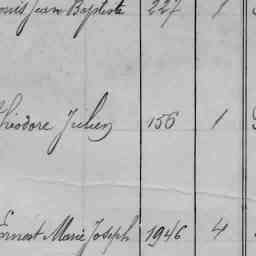 ouis Jean Baptiste 227 1
héodore Julien 156 1
Ernest Marie Joseph 1946 4